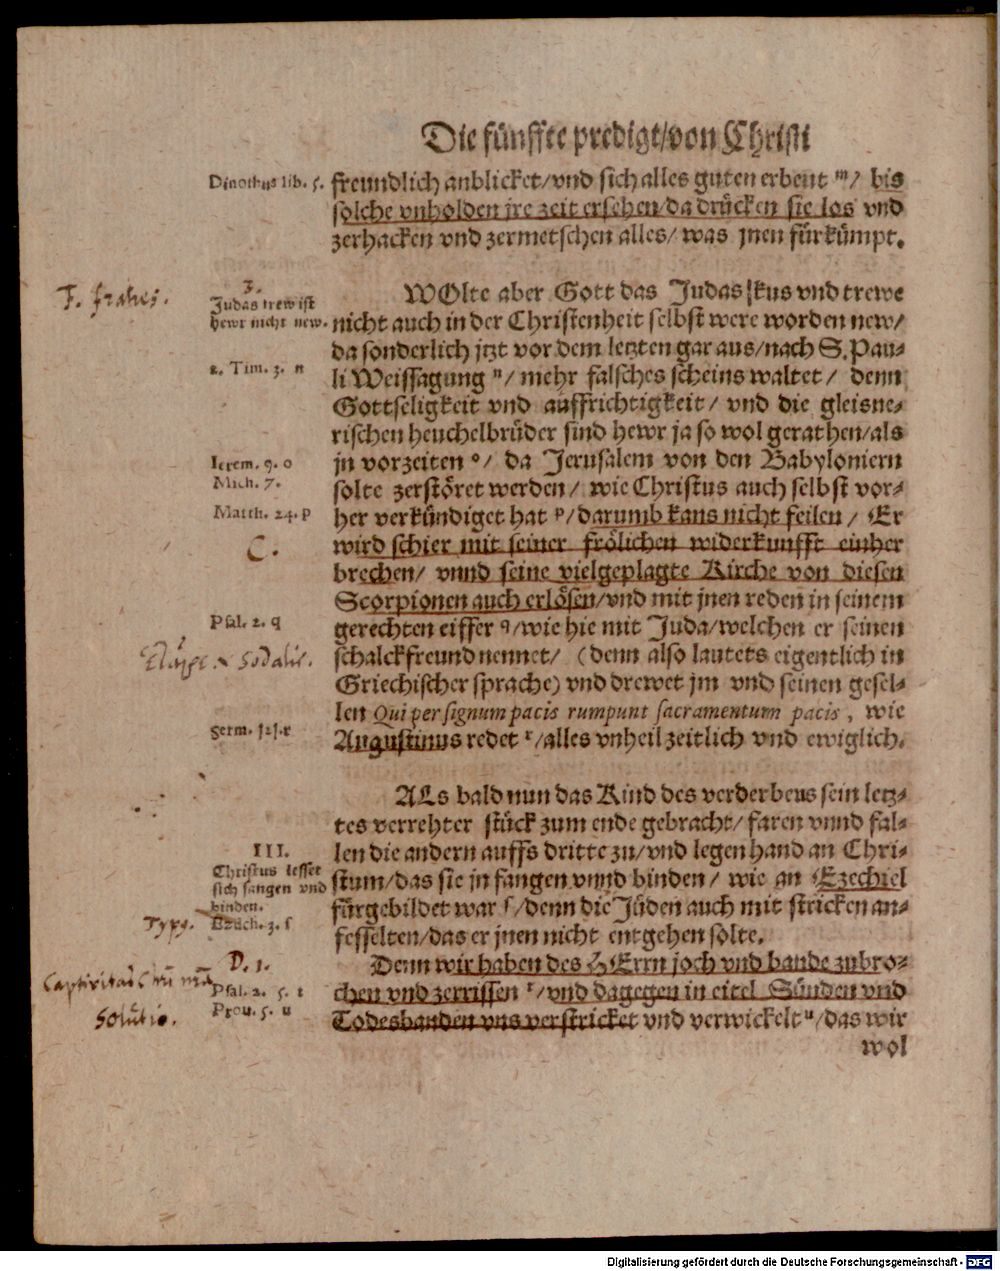 Die fünffte predigt/von Christi
Dinothus lib. 5.
freundlich anblicket/vnd sich alles guten erbeut ᵐ/ bis
solche vnholden jre zeit ersehen/da drücken sie los vnd
zerhacken vnd zermetschen alles/ was jnen fürkümpt.
F. fratres.
3.
Judas trew ist
hewr nicht new.
WOlte aber Gott das Judas kus vnd trewe
nicht auch in der Christenheit selbst were worden new/
da sonderlich jtzt vor dem letzten gar aus/nach S. Pau-
2. Tim. 3. n
li Weissagung ⁿ/ mehr falsches scheins waltet/ denn
Gottseligkeit vnd auffrichtigkeit/ vnd die gleisne-
rischen heuchelbrüder sind hewr ja so wol gerathen/als
Ierem. 9. o
Mich. 7.
jn vorzeiten ᵒ/ da Jerusalem von den Babyloniern
solte zerstöret werden/ wie Christus auch selbst vor-
Matth. 24. p
her verkündiget hat ᵖ/darumb kans nicht feilen/ Er
C.
wird schier mit seiner frölichen widerkunfft einher
brechen/ vnnd seine vielgeplagte Kirche von diesen
Scorpionen auch erlösen/vnd mit jnen reden in seinem
Psal. 2. q
gerechten eiffer q/wie hie mit Juda/welchen er seinen
sodalis.
schalckfreund nennet/ (denn also lautets eigentlich in
Griechischer sprache) vnd drewet jm vnd seinen gesel-
len Qui per signum pacis rumpunt sacramentum pacis, wie
germ. 121. r
Augustinus redet ʳ/alles vnheil zeitlich vnd ewiglich.
ALs bald nun das Kind des verderbens sein letz-
tes verrehter stück zum ende gebracht/ faren vnnd fal-
III.
len die andern auffs dritte zu/vnd legen hand an Chri-
Christus lesset
sich fangen vnd
binden.
stum/das sie jn fangen vnnd binden/ wie an Ezechiel
Typg.
Ezech. 3. s
fürgebildet war ˢ/denn die Jüden auch mit stricken an-
fesselten/das er jnen nicht entgehen solte.
D. 1.
Denn wir haben des HErrn joch vnd bande zubro-
Captivitas
Solutio.
Psal. 2. 5. t
Prou. 5. u
chen vnd zerrissen ᵗ/vnd dagegen in eitel Sünden vnd
Todesbanden vns verstricket vnd verwickelt ᵘ/das wir
wol
Digitalisierung gefördert durch die Deutsche Forschungsgemeinschaft - DFG